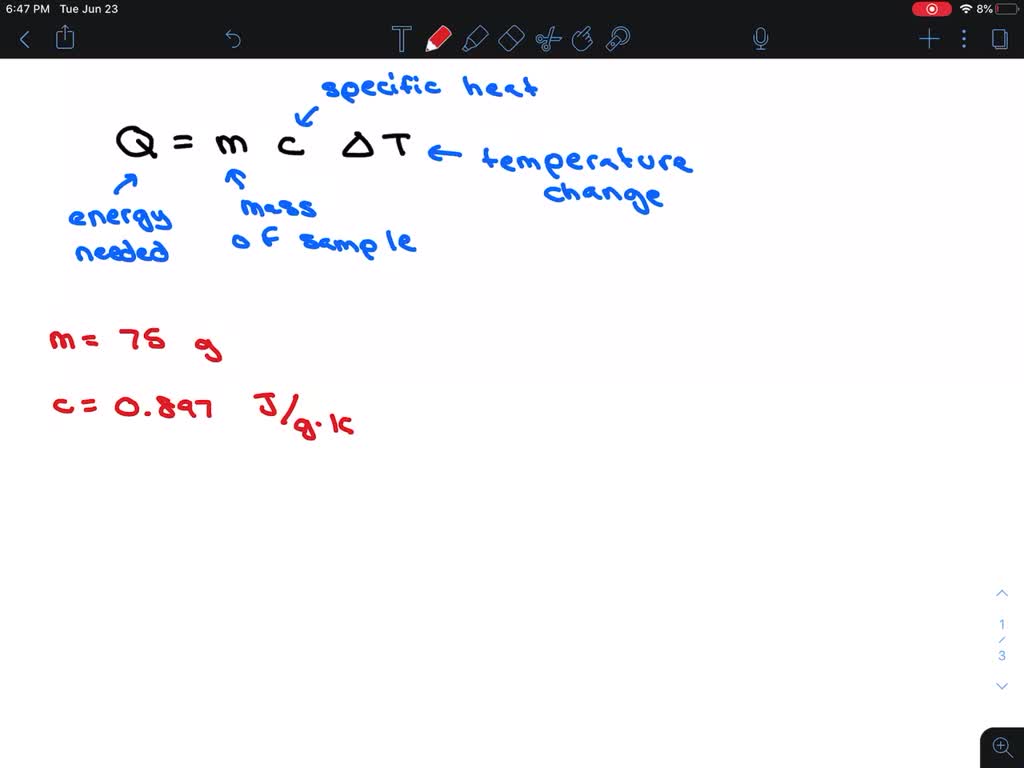 6:47 PM Tue Jun 23
8%
specific heat
Q = m c ΔT ← temperature
change
energy
needed
mass
of sample
m = 75 g
c = 0.897 J/g·K
1
/
3